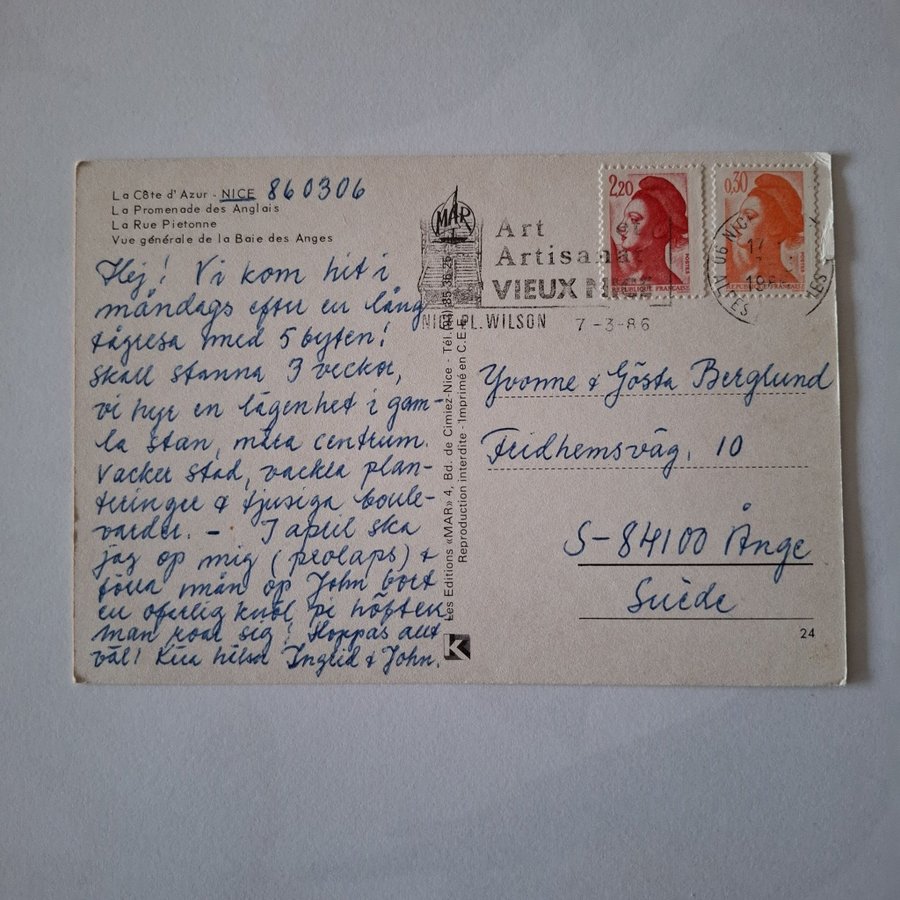 La Côte d'Azur - NICE 860306
La Promenade des Anglais
La Rue Pietonne
Vue générale de la Baie des Anges
Hej! Vi kom hit i
måndags efter en lång
tågresa med 5 byten!
Skall stanna 3 veckor,
vi hyr en lägenhet i gam-
la stan, nära centrum.
Vacker stad, vackra plan-
teringar & tjusiga boule-
varder. – I april ska
jag op mig (prolaps) &
förra mån op John bort
en ofarlig knöl på höften,
man roar sig! Hoppas allt
väl! Kära hälsn Ingrid & John.
MAR
Les Editions «MAR» 4, Bd. de Cimiez-Nice - Tél. (93) 85-36-25
Reproduction interdite - Imprimé en C.E.E.
K
Art et
Artisanat
VIEUX NICE
NICE PL. WILSON 7-3-86
2,20
POSTES
REPUBLIQUE FRANÇAISE
0,30
POSTES
REPUBLIQUE FRANÇAISE
06 NICE
17
Yvonne & Gösta Berglund
Fridhemsväg. 10
S-84100 Ånge
Suède
24